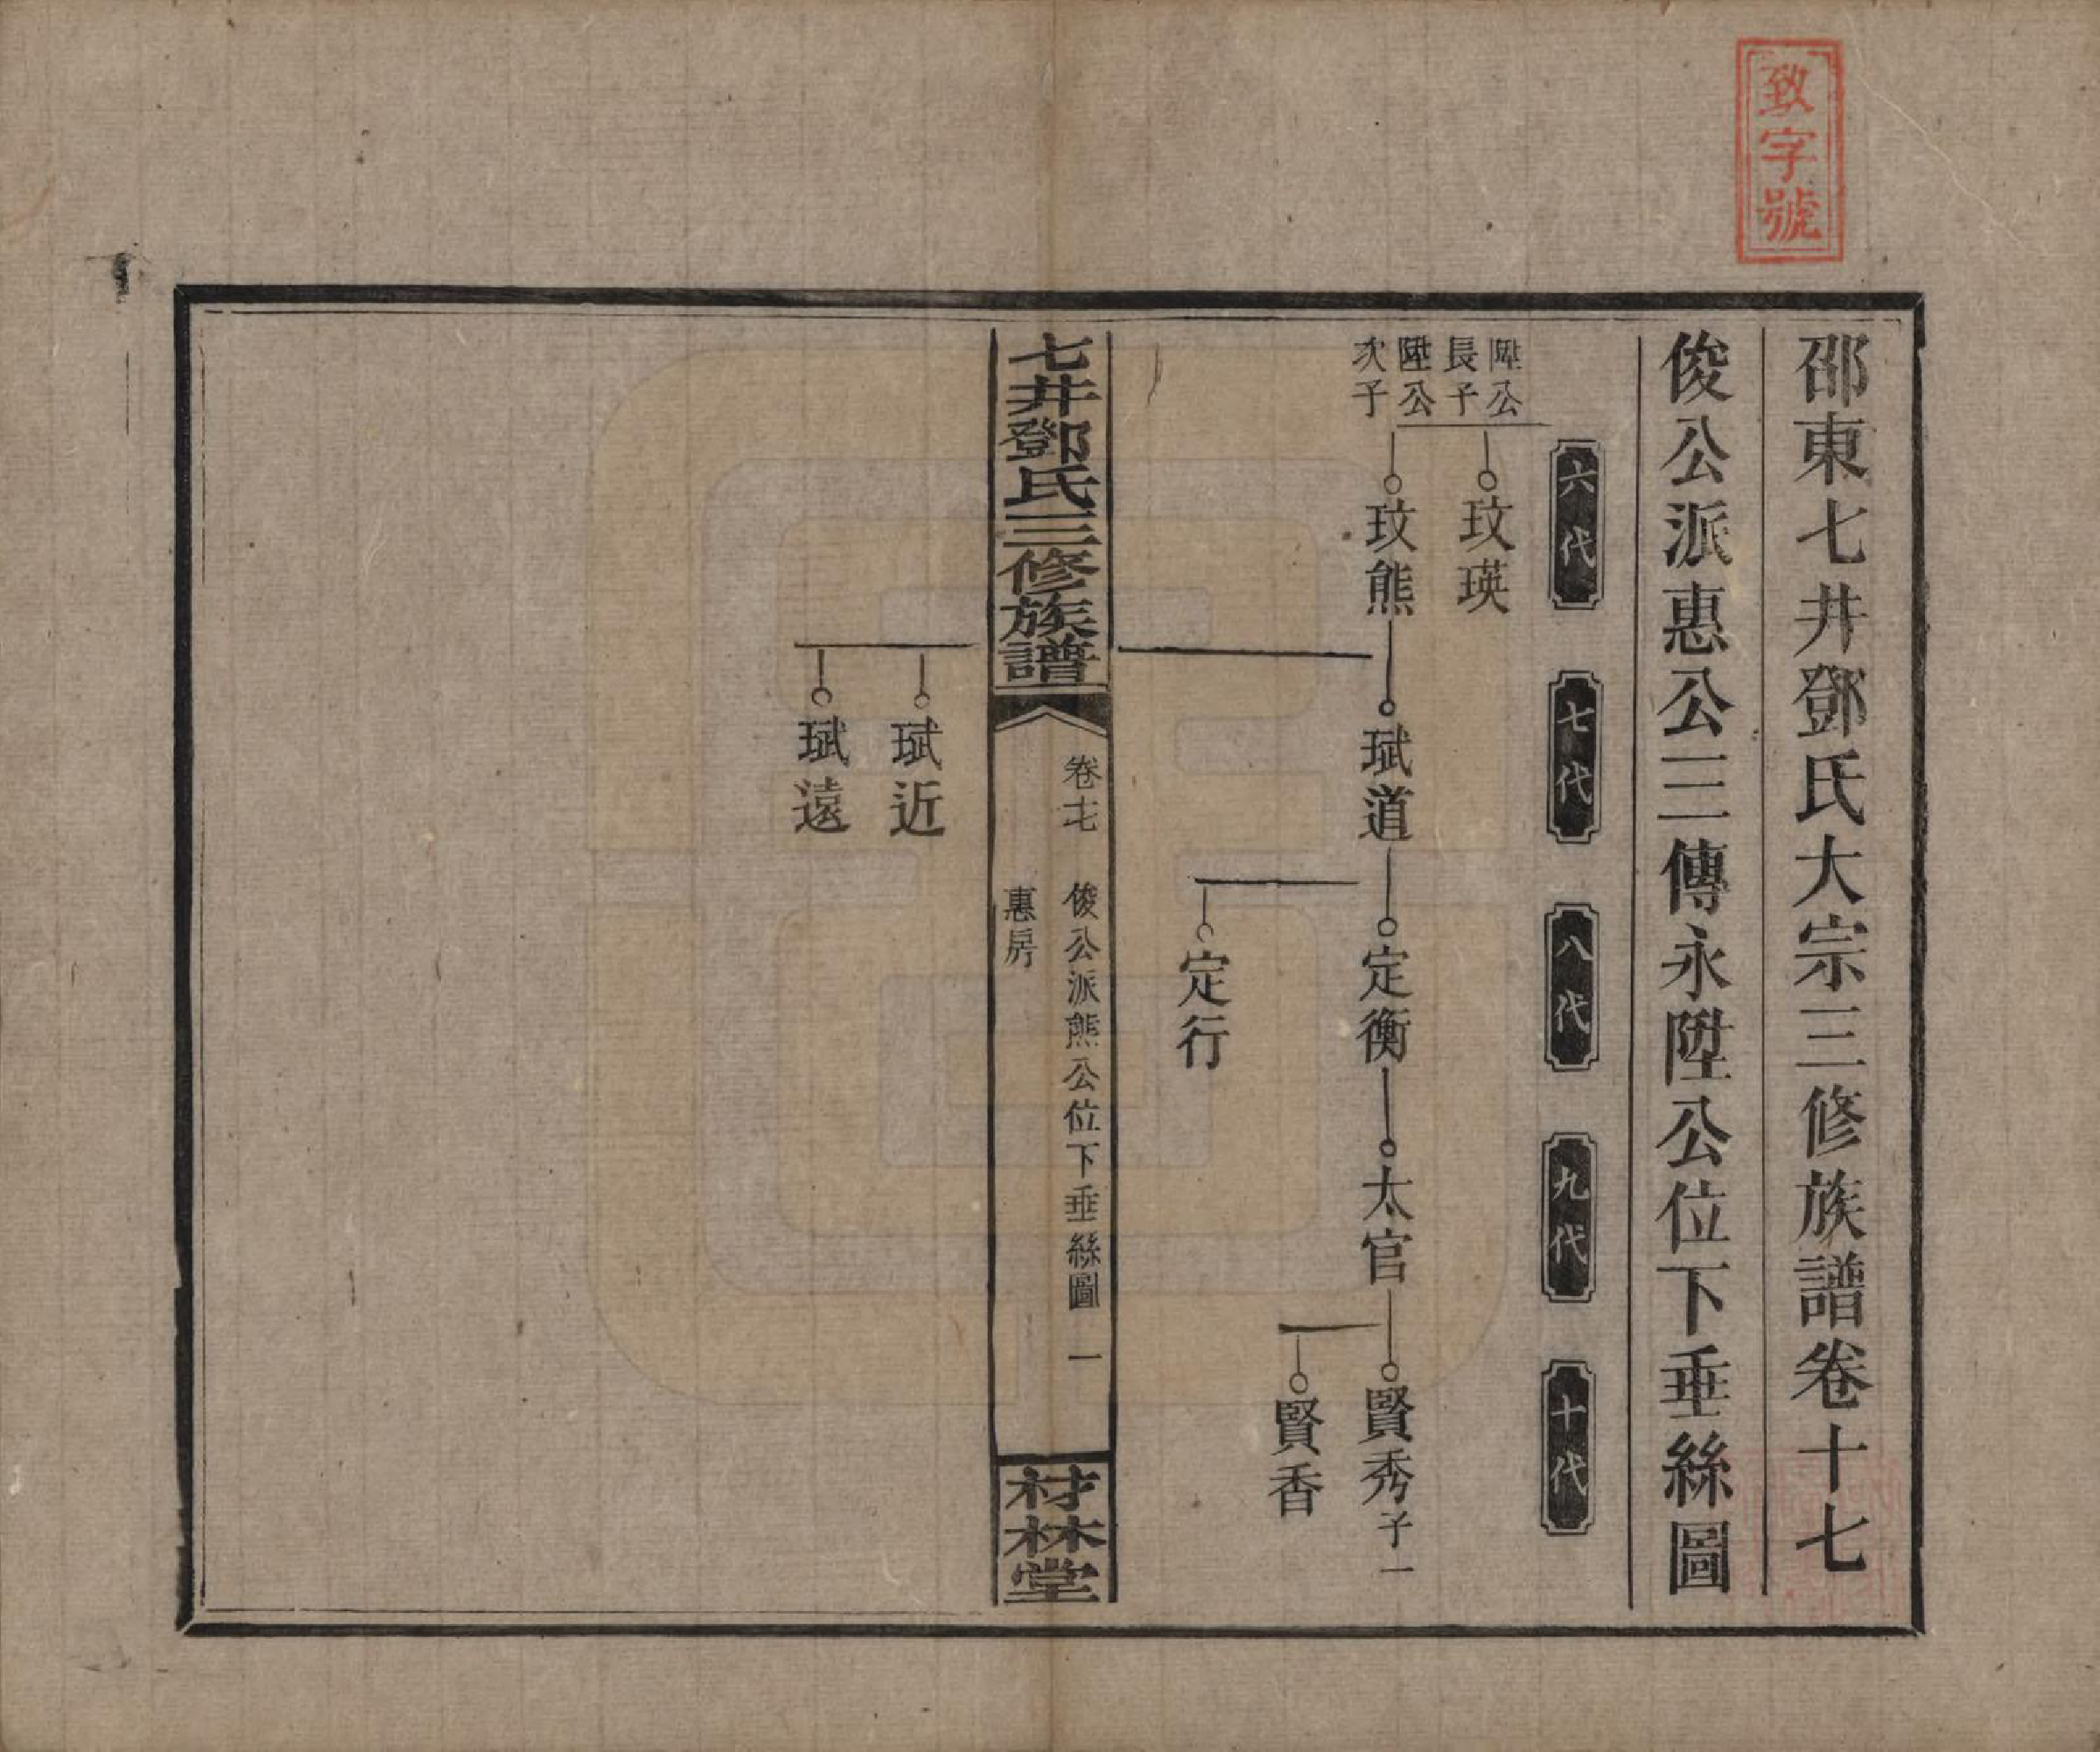 致字號
邵東七井鄧氏大宗三修族譜卷十七
俊公派惠公三傳永陞公位下垂絲圖
六代
七代
八代
九代
十代
陞公
長子
玟瑛
陞公
次子
玟熊
珷道
定衡
太官
賢秀 子一
賢香
定行
七井鄧氏三修族譜
卷十七
俊公派熊公位下垂絲圖 一
惠房
材林堂
珷近
珷遠